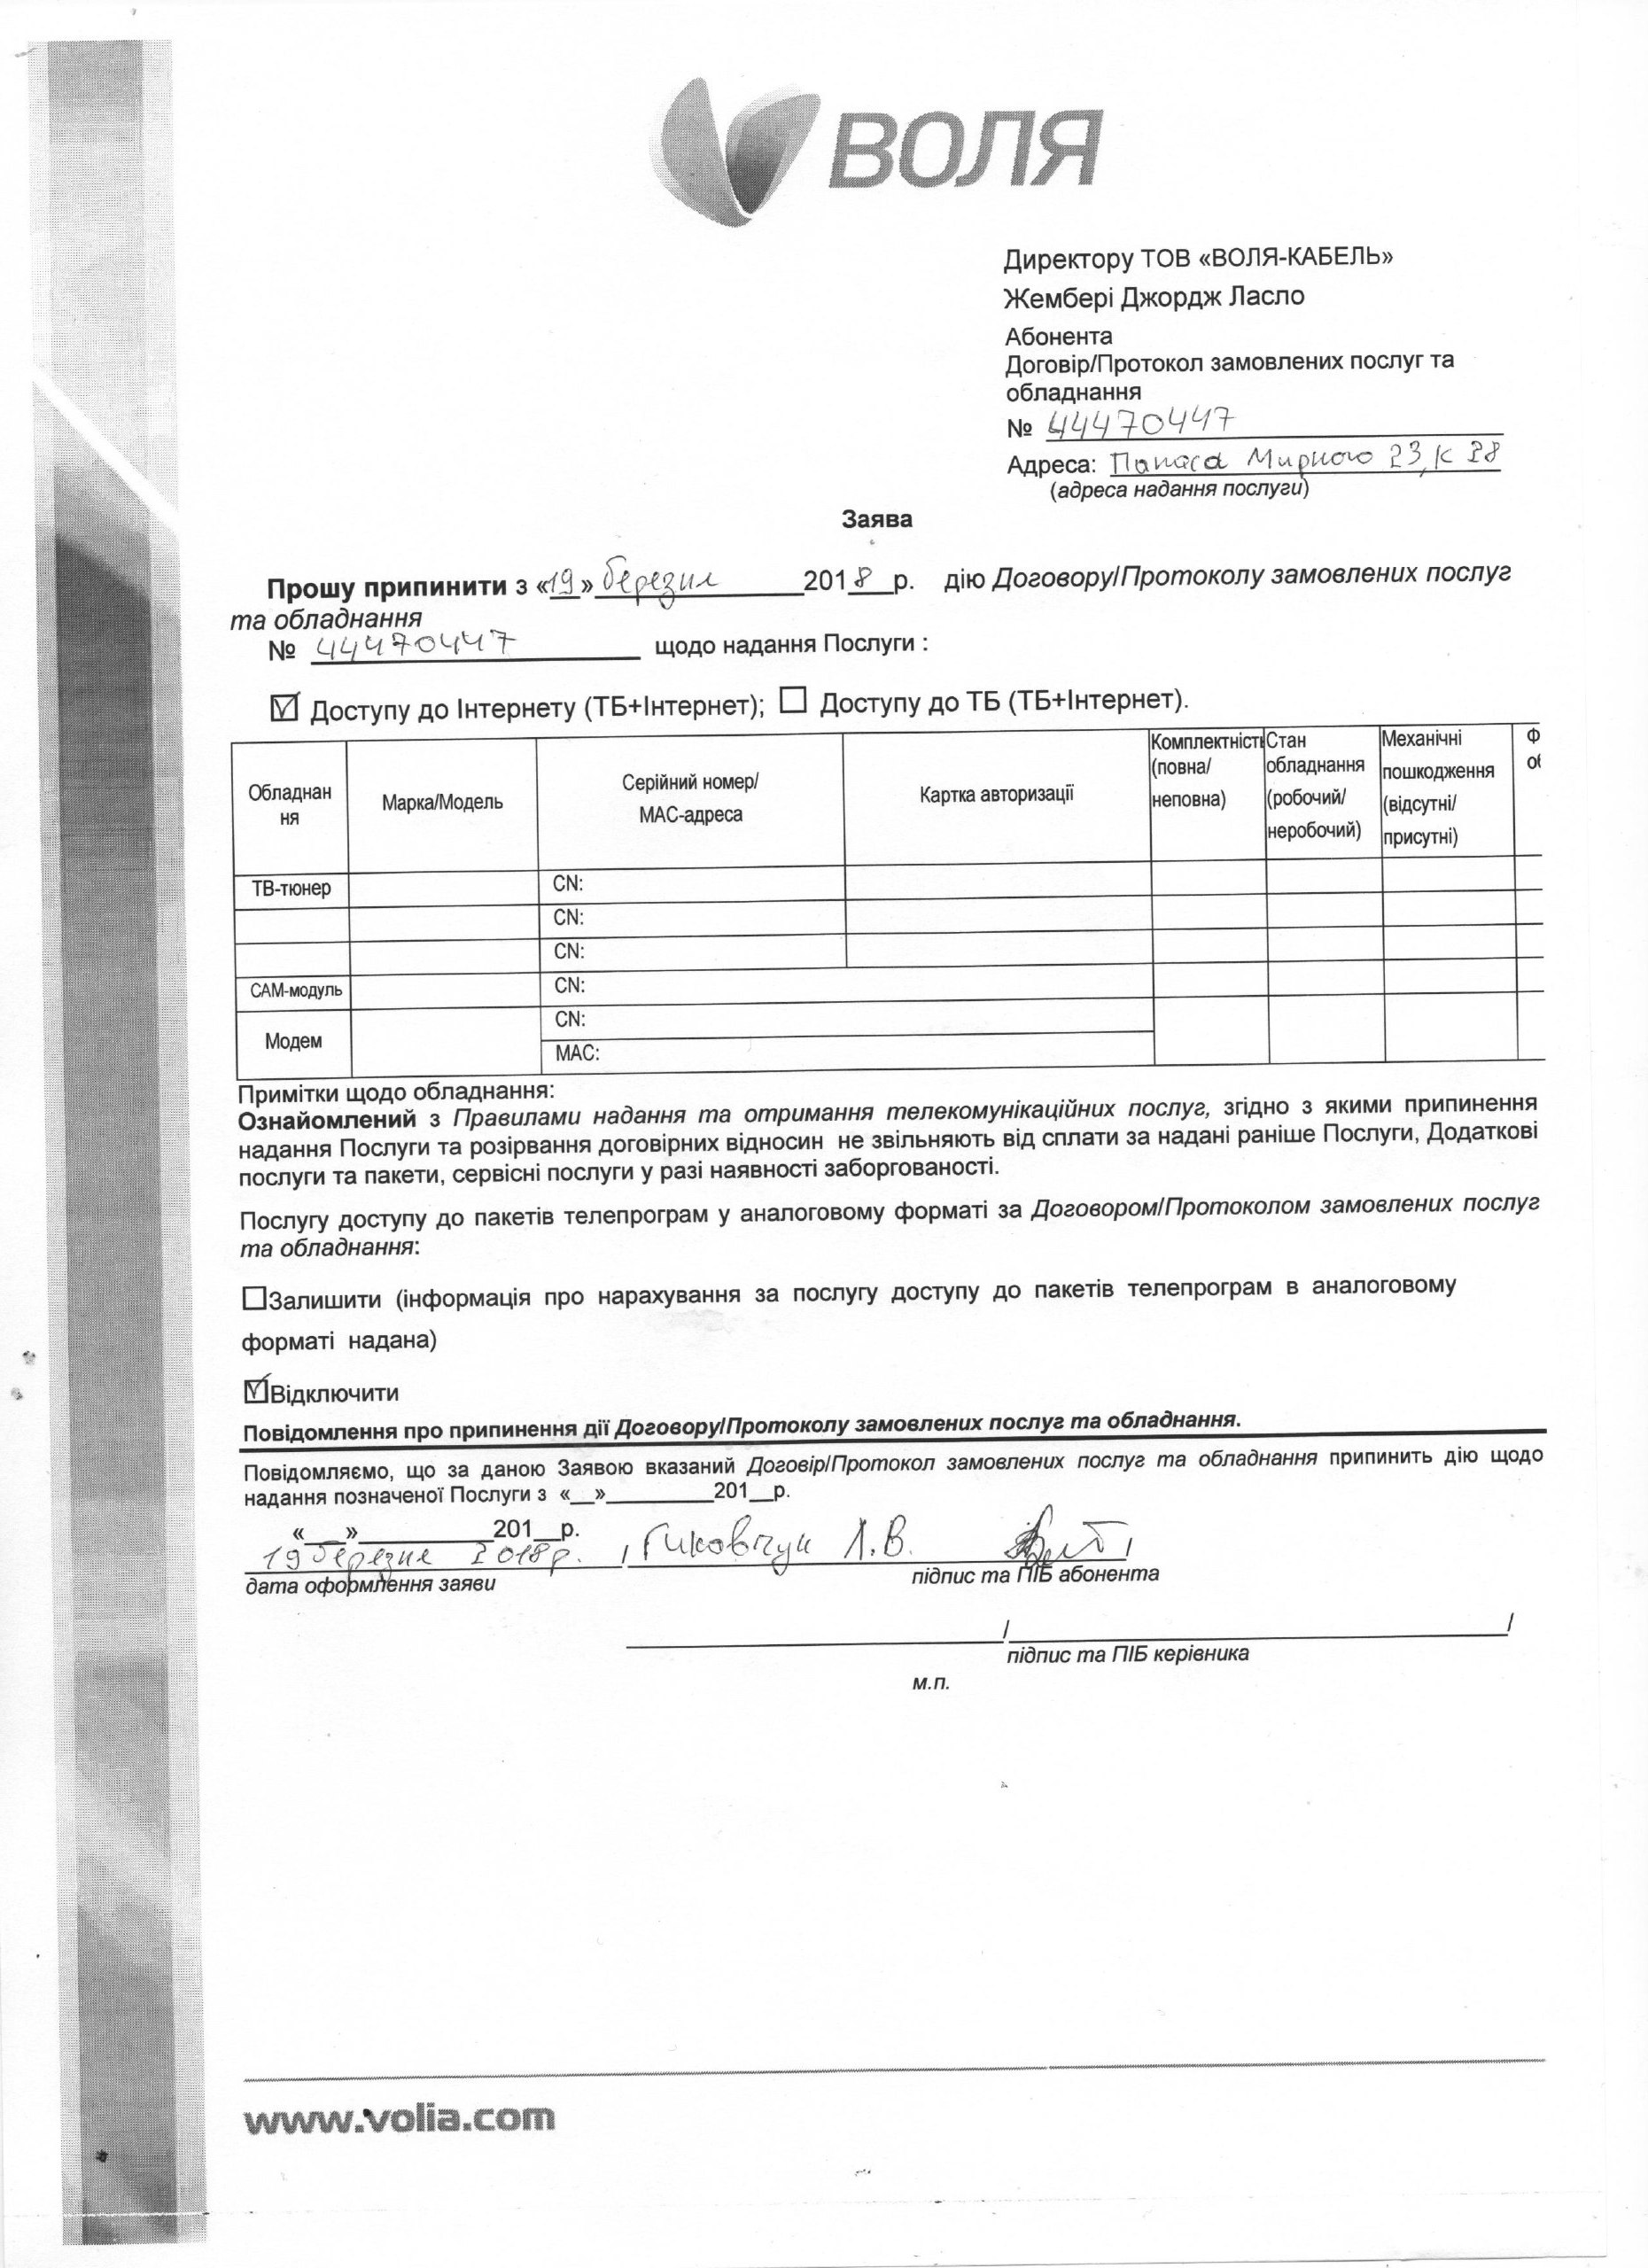 ВОЛЯ
Директору ТОВ «ВОЛЯ-КАБЕЛЬ»
Жембері Джордж Ласло
Абонента
Договір/Протокол замовлених послуг та
обладнання
№ 44470447
Адреса: Панаса Мирного 23, к 28
(адреса надання послуги)
Заява
Прошу припинити з «19» березня 2018 р. дію Договору/Протоколу замовлених послуг
та обладнання
№ 44470447 щодо надання Послуги :
☑ Доступу до Інтернету (ТБ+Інтернет); ☐ Доступу до ТБ (ТБ+Інтернет).
Обладнан
ня
Марка/Модель
Серійний номер/
МАС-адреса
Картка авторизації
Комплектніст
(повна/
неповна)
Стан
обладнання
(робочий/
неробочий)
Механічні
пошкодження
(відсутні/
присутні)
Ф
ТВ-тюнер CN:
CN:
CN:
САМ-модуль CN:
Модем CN:
MAC:
Примітки щодо обладнання:
Ознайомлений з Правилами надання та отримання телекомунікаційних послуг, згідно з якими припинення
надання Послуги та розірвання договірних відносин не звільняють від сплати за надані раніше Послуги, Додаткові
послуги та пакети, сервісні послуги у разі наявності заборгованості.
Послугу доступу до пакетів телепрограм у аналоговому форматі за Договором/Протоколом замовлених послуг
та обладнання:
☐Залишити (інформація про нарахування за послугу доступу до пакетів телепрограм в аналоговому
форматі надана)
☑Відключити
Повідомлення про припинення дії Договору/Протоколу замовлених послуг та обладнання.
Повідомляємо, що за даною Заявою вказаний Договір/Протокол замовлених послуг та обладнання припинить дію щодо
надання позначеної Послуги з «__»_________201__р.
«___»___________201__р.
19 березня 2018р. / Л.В. /
дата оформлення заяви підпис та ПІБ абонента
/ /
підпис та ПІБ керівника
м.п.
www.volia.com